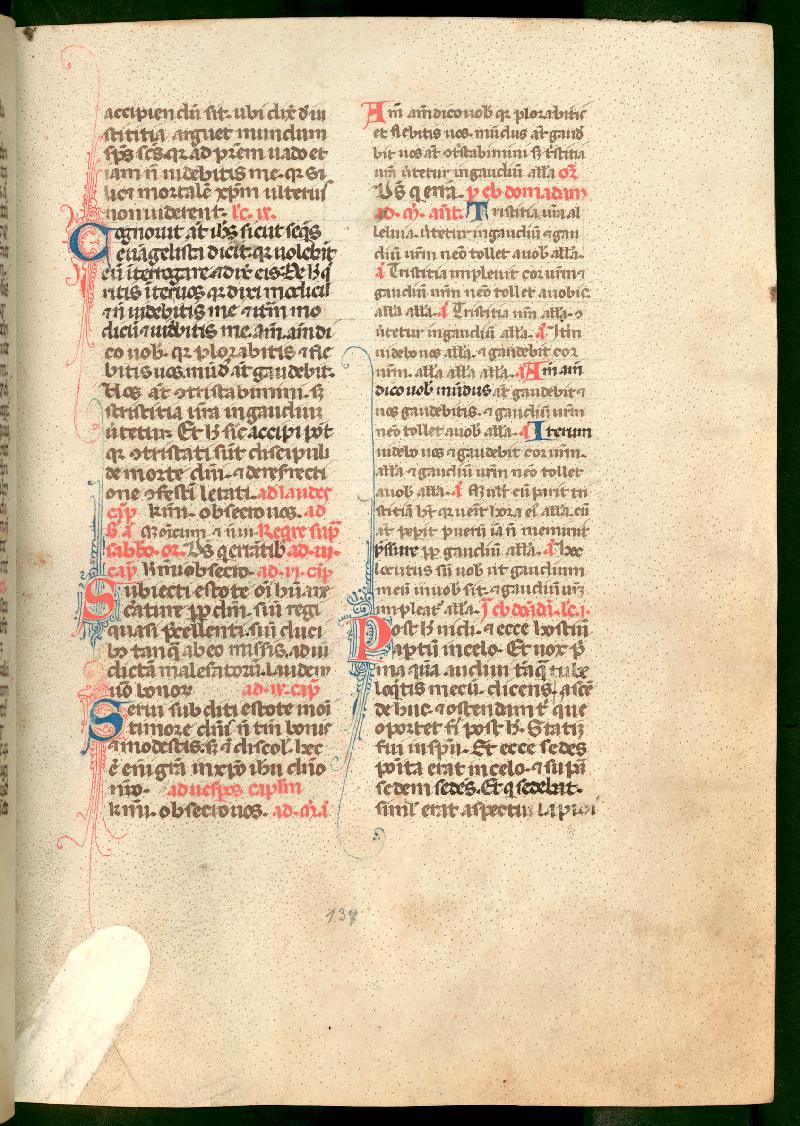 accipien dū sit. ubi dix̄ d̄ iu
stititia arguet mundum
sp̄s sc̄s. qr̄ ad prēm uado et
iam n̄ uidebitis me. qr̄ si
lic̄ mortalē xp̄m ulterius
non uiderent. lc̄. ix.
Cognouit at̄ ih̄s sicut seq̄s
euāgelista dicit. qr̄ uolebāt
eū īterrogare ⁊ dix̄ eis. De h̄ q̄
ritis īter uos qr̄ dixi modicū
⁊ n̄ uidebitis me ⁊ itm̄ mo
dicū ⁊ uidebitis me. Am̄. am̄ di
co uob̄. qr̄ plorabitis ⁊ fle
bitis uos. mūd̄ at̄ gaudebit.
Uos at̄ ꝯtristabimini. sꝫ
tristitia ur̄a in gaudiū
ūtetur. Et h̄ sic accipi pōt
qr̄ ꝯtristati sūt discipuli
de morte dn̄i. ⁊ de resrecti
one ꝯfestī letati. ad laudes
cap̄. k̄mi. obsecro uos. ad
b̄ ā Modicum ⁊ n̄ ui Regr̄e sup̄
sabbo. or̄. Ds̄ q errātib̄ ad. iii.
cap̄ k̄mi obsecro. ad. vi. cap̄
Subiecti estote oī hūane
creature pp̄ dm̄. siū regi
quasi p̄cellenti. siū duci
bꝫ tanq̄ ab eo missis. ad ui
dictā malefactorū. laudem
uō bonor̄ ad. ix. cap̄
Serui subditi estote in oī
timore dn̄is n̄ tm̄ bonis
⁊ modestis. sꝫ ⁊ discol. hec
ē eni grā in xp̄o ih̄u dn̄o
nr̄o. ad uesp̄os caplm̄
k̄mi. obsecro uos. ad. m̄. ā
Am̄ am̄ dico uob̄ qr̄ plorabitis
et flebitis uos. mūdus at̄ gaud
bit uos at̄ ꝯtstabimini sꝫ tstitia
ur̄a ūtetur in gaudiū alla or̄
Ds̄ q errā. p̄ ebdomadam
ad. m̄. ant̄. Tristitia ur̄a al
leluia. ūtetur in gaudiū ⁊ gau
diū ur̄m neō tollet a uob̄ alla.
ā Tristitia impleuit cor ur̄m ⁊
gaudiū ur̄m neō tollet a uobis
alla alla. ā Tristitia ur̄a alla. ⁊
ūtetur in gaudiū alla. ā Itm̄
uidebo uos alla. ⁊ gaudebit cor
ur̄m. alla alla alla. ā Am̄ am̄
dico uob̄ mūdus at̄ gaudebit ⁊
uos gaudebitis. ⁊ gaudiū ur̄m
neō tollet a uob̄ alla. ā Iterum
uidebo uos ⁊ gaudebit cor ur̄m.
alla ⁊ gaudiū ur̄m neō tollet
a uob̄ alla. ā Mulr̄ cū parit tri
stitiā h̄t qr̄ uenit hora ei alla. cū
at̄ pep̄it puerū iā n̄ meminit
p̄ssure pp̄ gaudiū alla. ā hec
locutus sū uob̄ ut gaudium
meū in uob̄ sit. ⁊ gaudiū ur̄m
impleat̄ alla. p̄ ebdōdā. lc̄. i.
Post h̄ uidi. ⁊ ecce hostiū
aptū in celo. Et uox p̄
ma quā audiui tāq̄ tube
loq̄tis mecū dicens. ascē
de huc. ⁊ ostendam t̄ que
oportet fi post h̄. Statī
fui in sp̄u. Et ecce sedes
poita erat in celo. ⁊ supā
sedem sedēs. Et q sedebat.
simil̄ erat aspectui lapidi
137